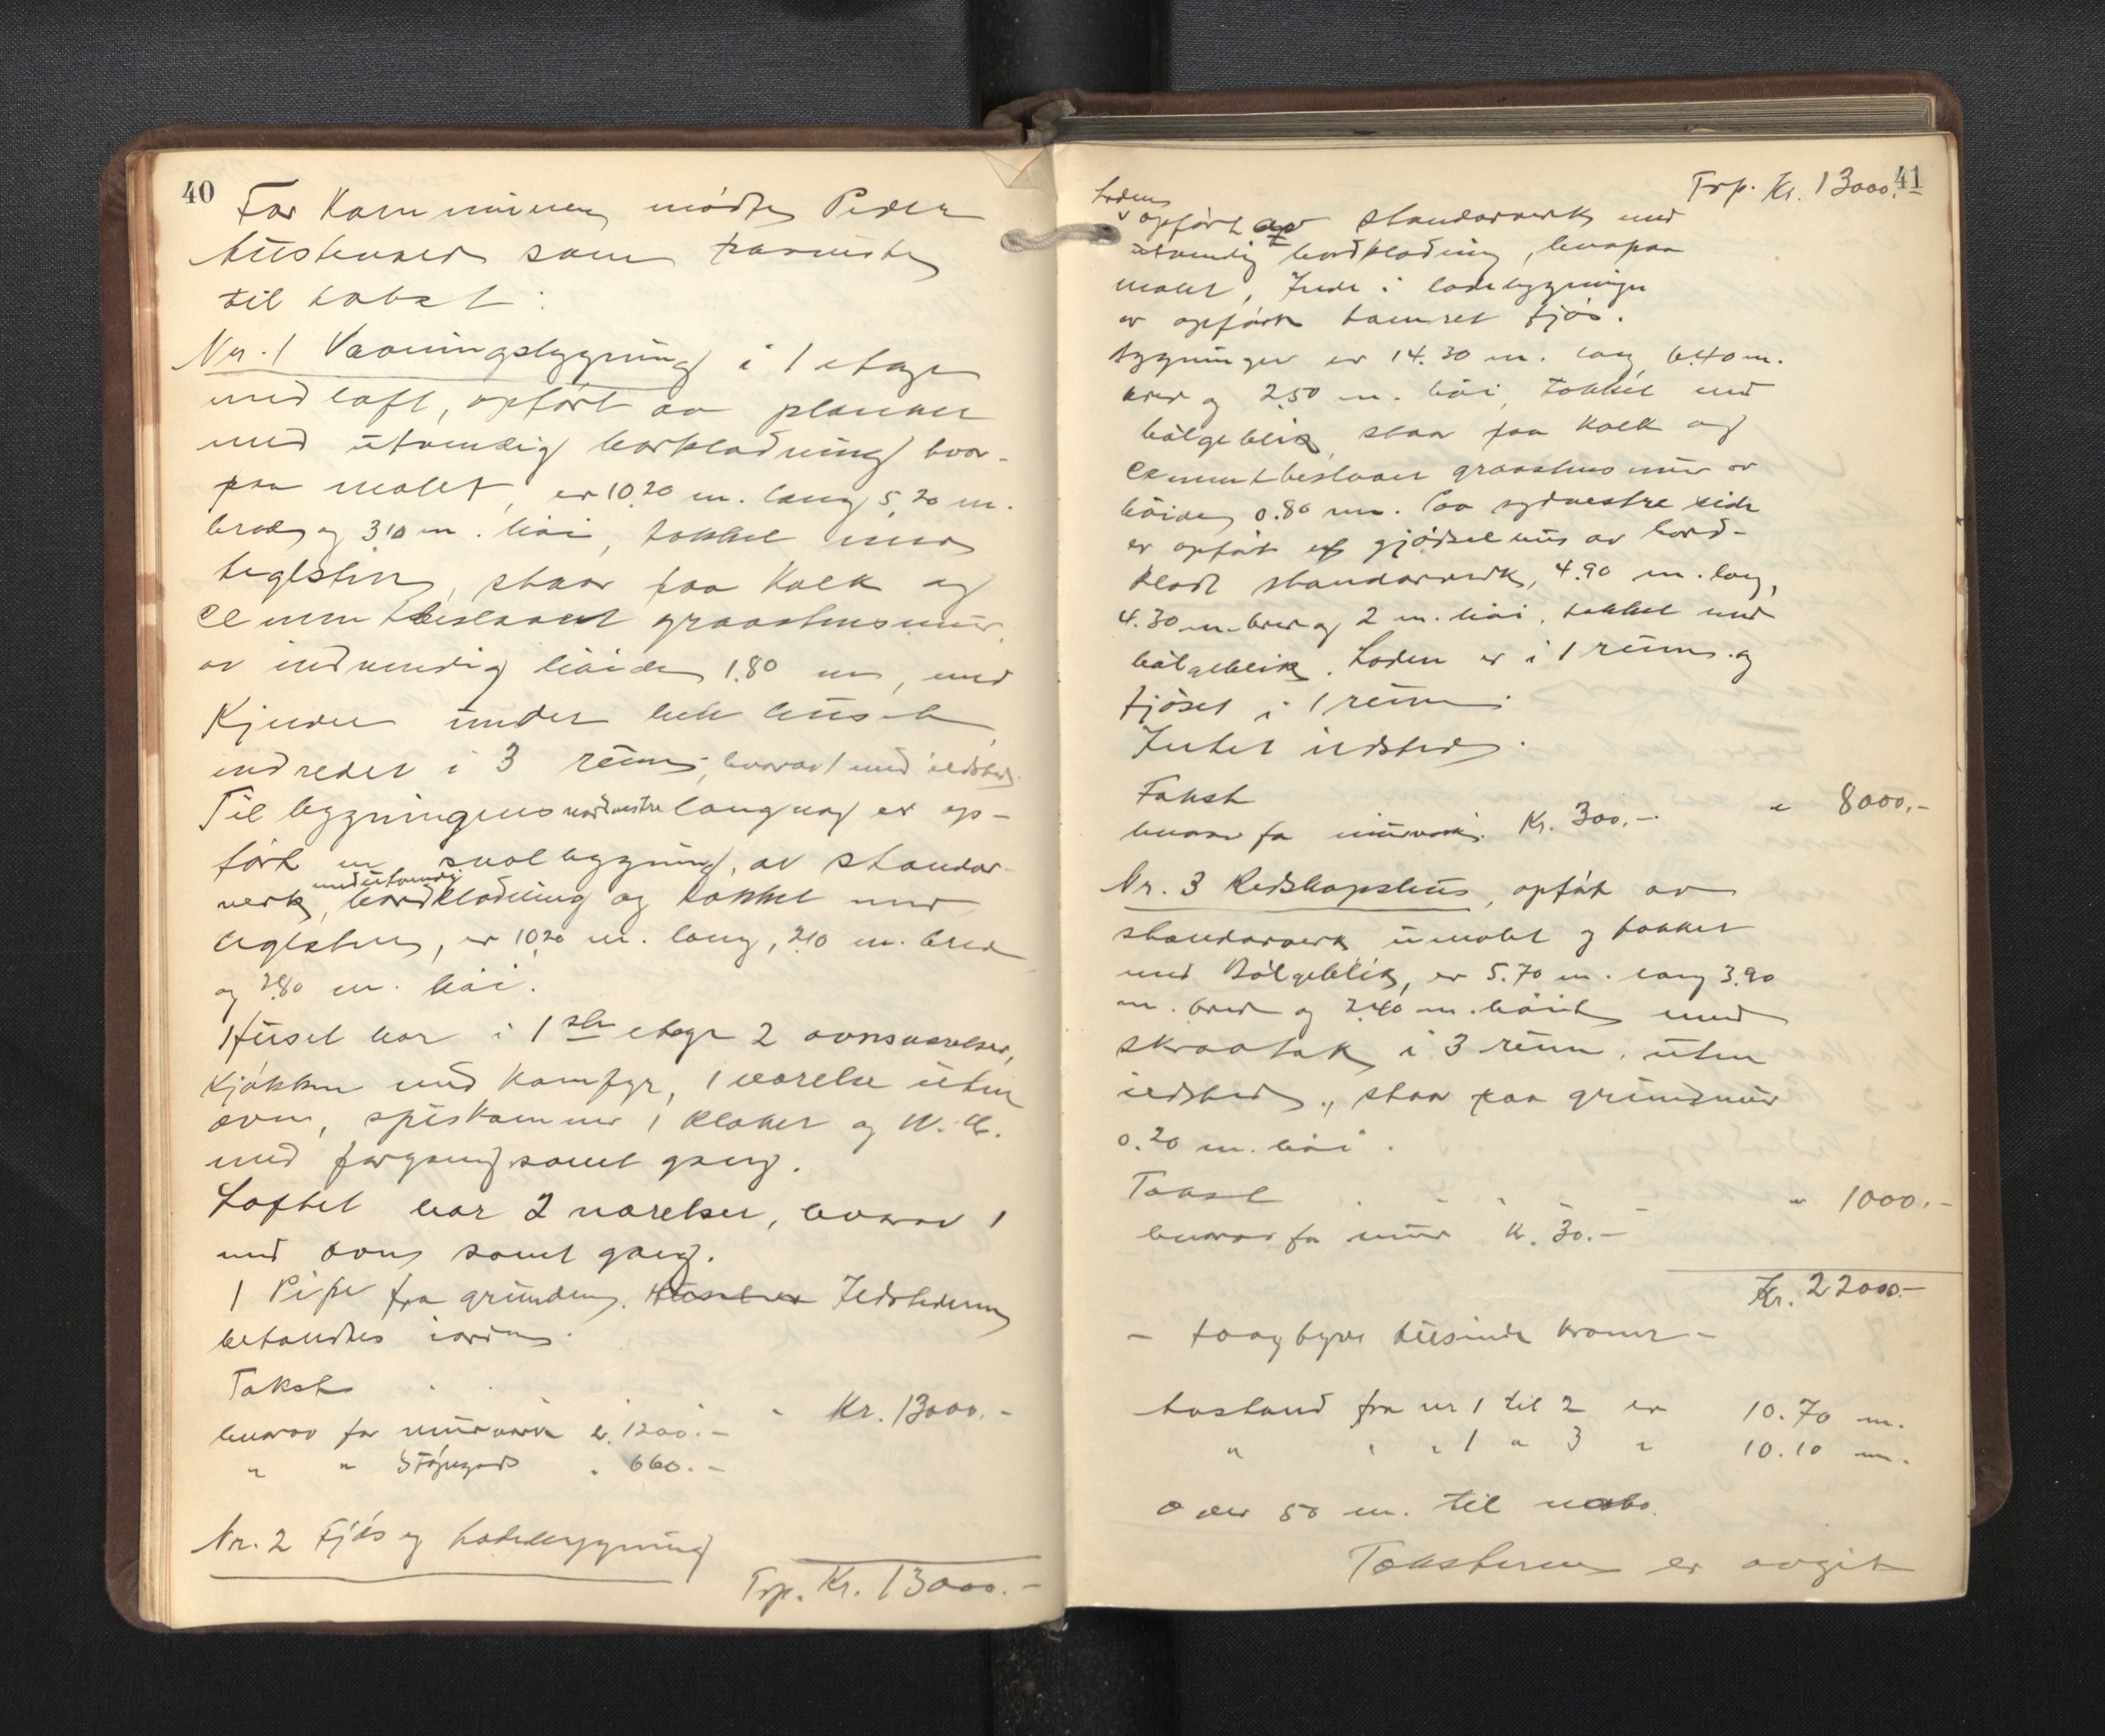 40
For Kommunen mødte Peder
som paaviste
til takst:
Nr. 1 Vaaningsbygning i 1 etage
med loft, opført av planker
med utvendig bordklædning hvor-
paa malet, er 10.20 m. lang 5,20 m.
bred og 3.10 m. høi, tækket med
teglsten, staar paa Kalk og
cementbeslaaet graastensmur,
av indvendig høide 1.80 m, med
Kjelder under hele huset,
indredet i 3 rum, hvorav 1 med ildsted.
Til bygningens nordvestre langvæg er op-
ført en svalbygning, av stander-
verk, med utvendig bordklædning og tækket med
teglsten, er 10.20 m. lang, 2.10 m. bred
og 2.80 m. høi.
Huset har i 1ste etage 2 ovnsværelser,
Kjøkken med Komfyr, 1 værelse uten
ovn, spiskammer, 1 klosett og W.C.
med forgang samt gang.
Loftet har 2 værelser, hvorav 1
med ovn samt gang.
1 Pipe fra grunden. Huset er Ildstederne
befandtes iorden.
Takst . . . Kr. 13000.-
hvorav for murverk Kr. 1200.-
" " 660.-
Nr. 2 Fjøs og Ladebygning
Trp. Kr. 13000.-
41
Trp. Kr. 13000.-
Laden
opført av standerverk med
utvendig bordklædning, hvorpaa
malet, Inde i ladebygningen
er opført tømret fjøs.
Bygningen er 14.30 m. lang 6.40 m.
bred og 2.50 m. høi, tækket med
bølgeblik, staar paa Kalk og
cementbeslaaet graastensmur av
høide 0.80 m. Paa sydvestre side
er opført et gjødselhus av bord-
klædt standerverk, 4.90 m. lang,
4.30 m. bred og 2 m. høi, tækket med
bølgeblik. Laden er i 1 rum og
fjøset i 1 rum.
Intet ildsted.
Takst " 8000.-
hvorav for murverk. Kr. 300.-
Nr. 3 Redskapshus, opført av
standerverk umalet og tækket
med Bølgeblik, er 5.70 m. lang 3.90
m. bred og 2.40 m. høit med
skraatak, i 3 rum, uten
ildsted, staar paa grundmur
0.20 m. høi.
Takst . - - - - " 1000.-
hvorav for mur Kr. 30.-
Kr. 22000.-
- toogtyve tusinde kroner -
Avstand fra nr 1 til 2 er 10.70 m.
" " " 1 " 3 " 10.10 m.
Over 50 m. til nabo.
Taksterne er avgit